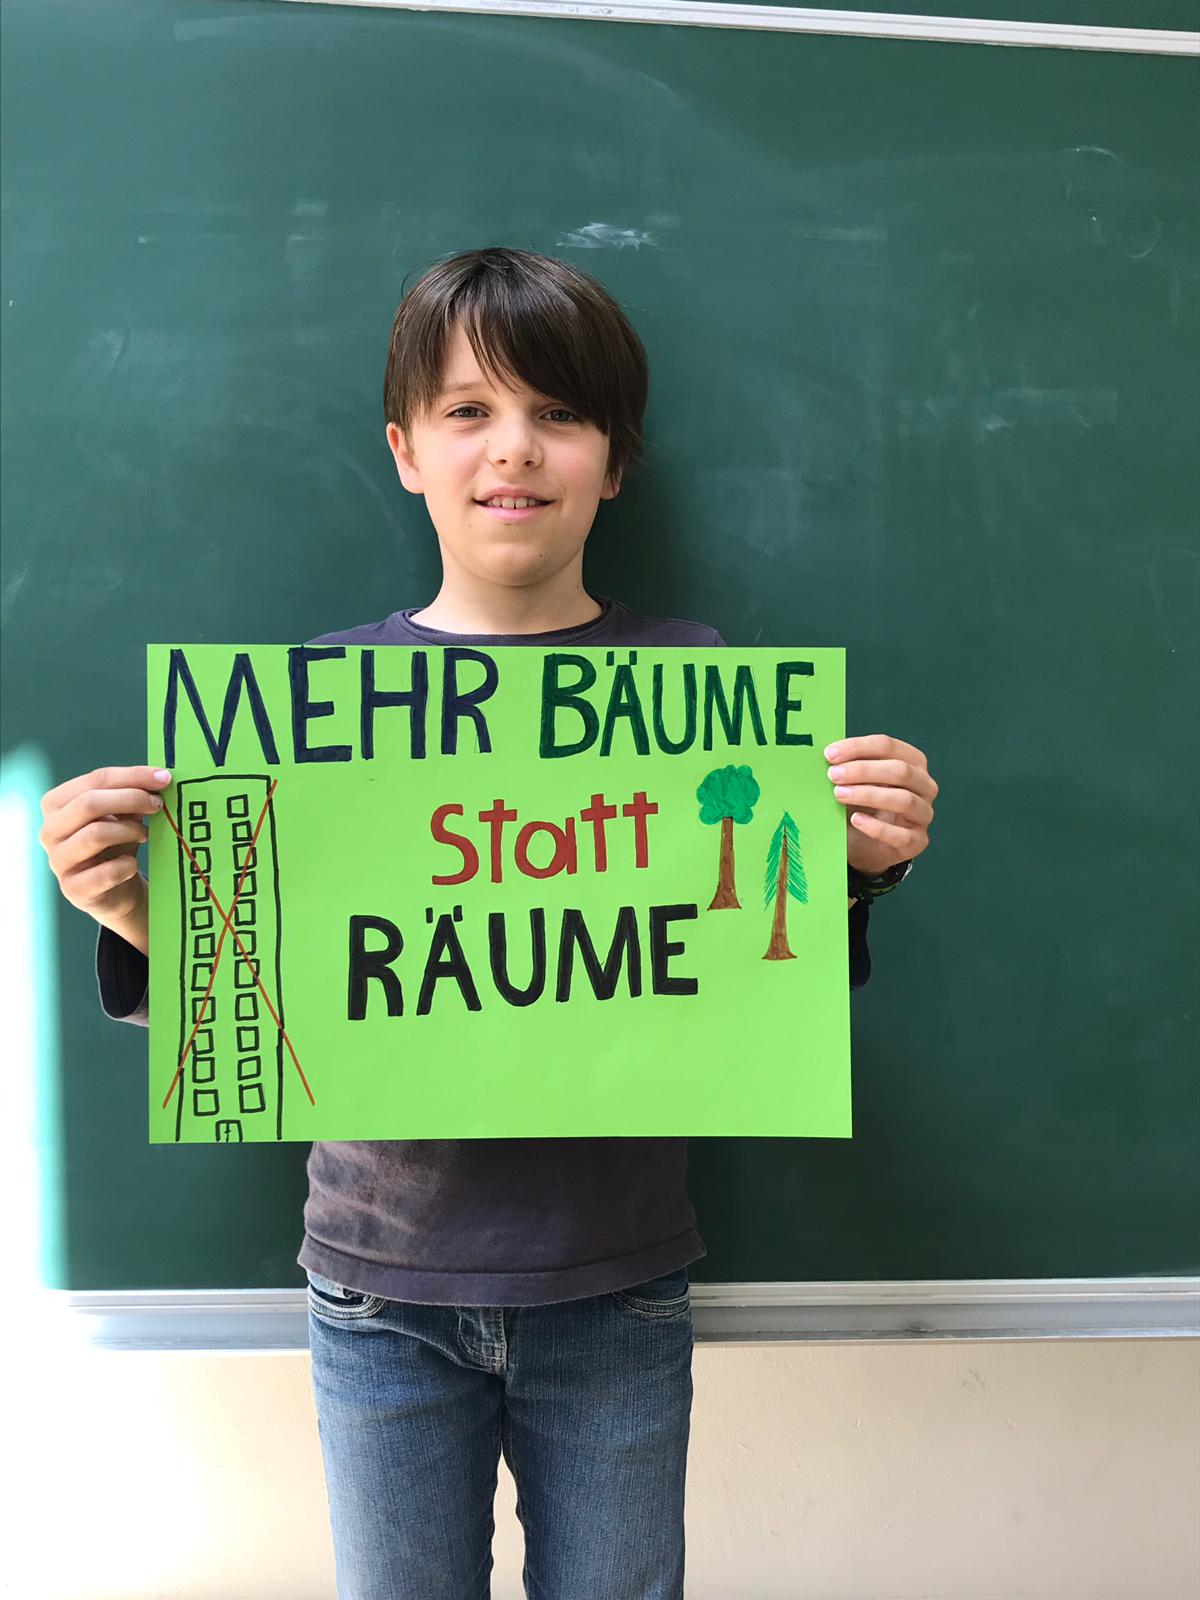 MEHR BÄUME
statt
RÄUME